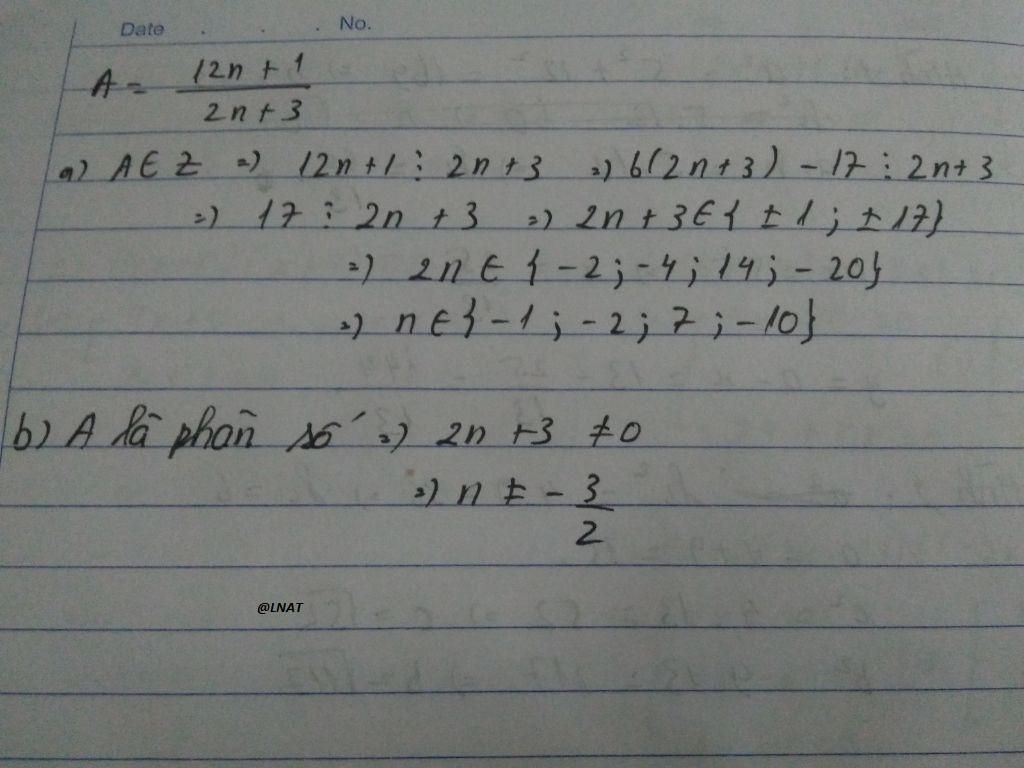 Date . . . No.
A = \frac{12n + 1}{2n + 3}
a) A ∈ Z => 12n + 1 ⋮ 2n + 3 => 6(2n + 3) - 17 ⋮ 2n + 3
=> 17 ⋮ 2n + 3 => 2n + 3 ∈ { ± 1 ; ± 17}
=> 2n ∈ { - 2 ; - 4 ; 14 ; - 20}
=> n ∈ { - 1 ; - 2 ; 7 ; - 10}
b) A là phân số => 2n + 3 ≠ 0
=> n ≠ - \frac{3}{2}
@LNAT